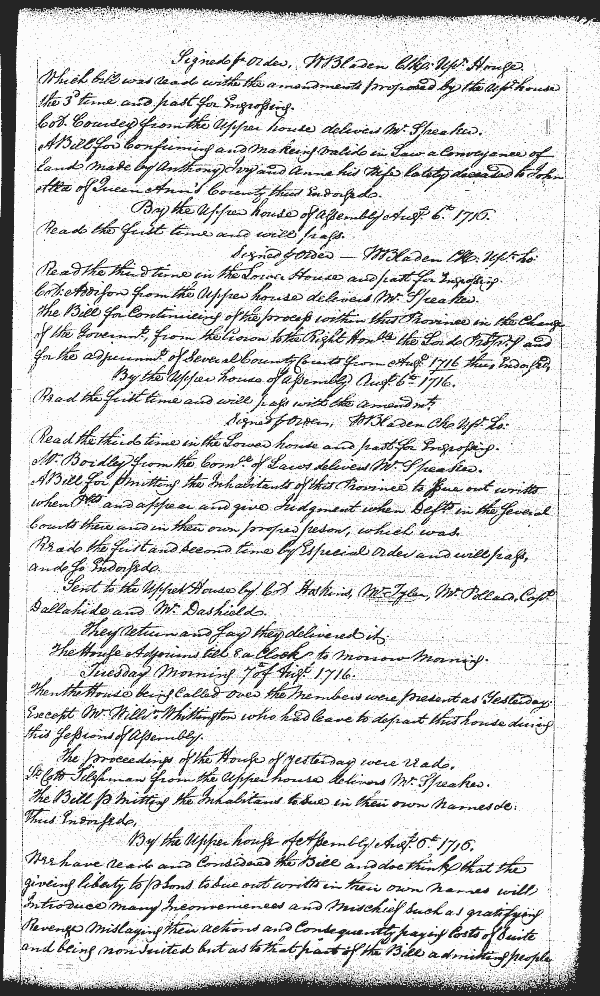 Signed p Order, WBladen Clk Upr House
Which bill was read with the amendments proposed by the Upr house
the 3d time and past for Engrossing.
Col. Coursey from the Upper house delivers Mr. Speaker.
A Bill for Confirming and makeing valid in Law a Conveyance of
Land made by Anthony Ivy and Anne his Wife lately deceased to John
of Queen Ann's County thus Endorsed.
By the Upper house of Assembly Augt. 6th. 1716.
Read the first time and will pass.
Signed p Order — WBladen Clk. Upr. ho:
Read the third time in the Lower House and past for Engrossing.
Col: Addison from the Upper house delivers Mr. Speaker.
The Bill for Continueing of the process within this Province in the Change
of the Governmt. from the Crown to the Right Honble the Lord Propry. and
for the adjournmt. of Several County Courts from Augt. 1716 thus Endorsed,
By the Upper house of Assembly Augt. 6th. 1716.
Read the first time and will pass with the amendmt.
Signed p Order, WBladen Clk Upr. ho:
Read the third time in the Lower house and past for Engrossing.
Mr. Bordley from the Comee. of Laws delivers Mr. Speaker.
A Bill for pmitting the Inhabitants of this Province to Sue out writts
when and appear and give Judgment when Defts. in the Several
Courts there and in their own proper person, which was
Read the first and second time by Especial Order and will pass,
and so Endorsed.
Sent to the Upper House by Col Hoskins, Mr. Tyler, Mr. Pollard, Capt.
Dallahide and Mr. Dashield.
They return and say they delivered it
The House Adjourns till Clock to morrow Morning.
Tuesday Morning 7th of Augt. 1716.
Then the House being Called over the Members were present as Yesterday.
Except Mr. Willm. Whittington who had leave to depart this house during
this Sessions of Assembly.
The proceedings of the House of Yesterday were read.
Lt. Coll Tilghman from the Upper house delivers Mr. Speaker.
The Bill pmitting the Inhabitans to Sue in their own names &c:
Thus Endorsed,
By the Upper house of Assembly Augt. 6th. 1716.
Wee have read and Considered the Bill and doe think that the
giveing liberty to psons to sue out writts in their own names will
Introduce many Inconveniences and Mischief such as gratifying
Revenge mislaying their actions and Consequently paying Costs of Suite
and being nonsuited but as to that part of the Bill admitting people